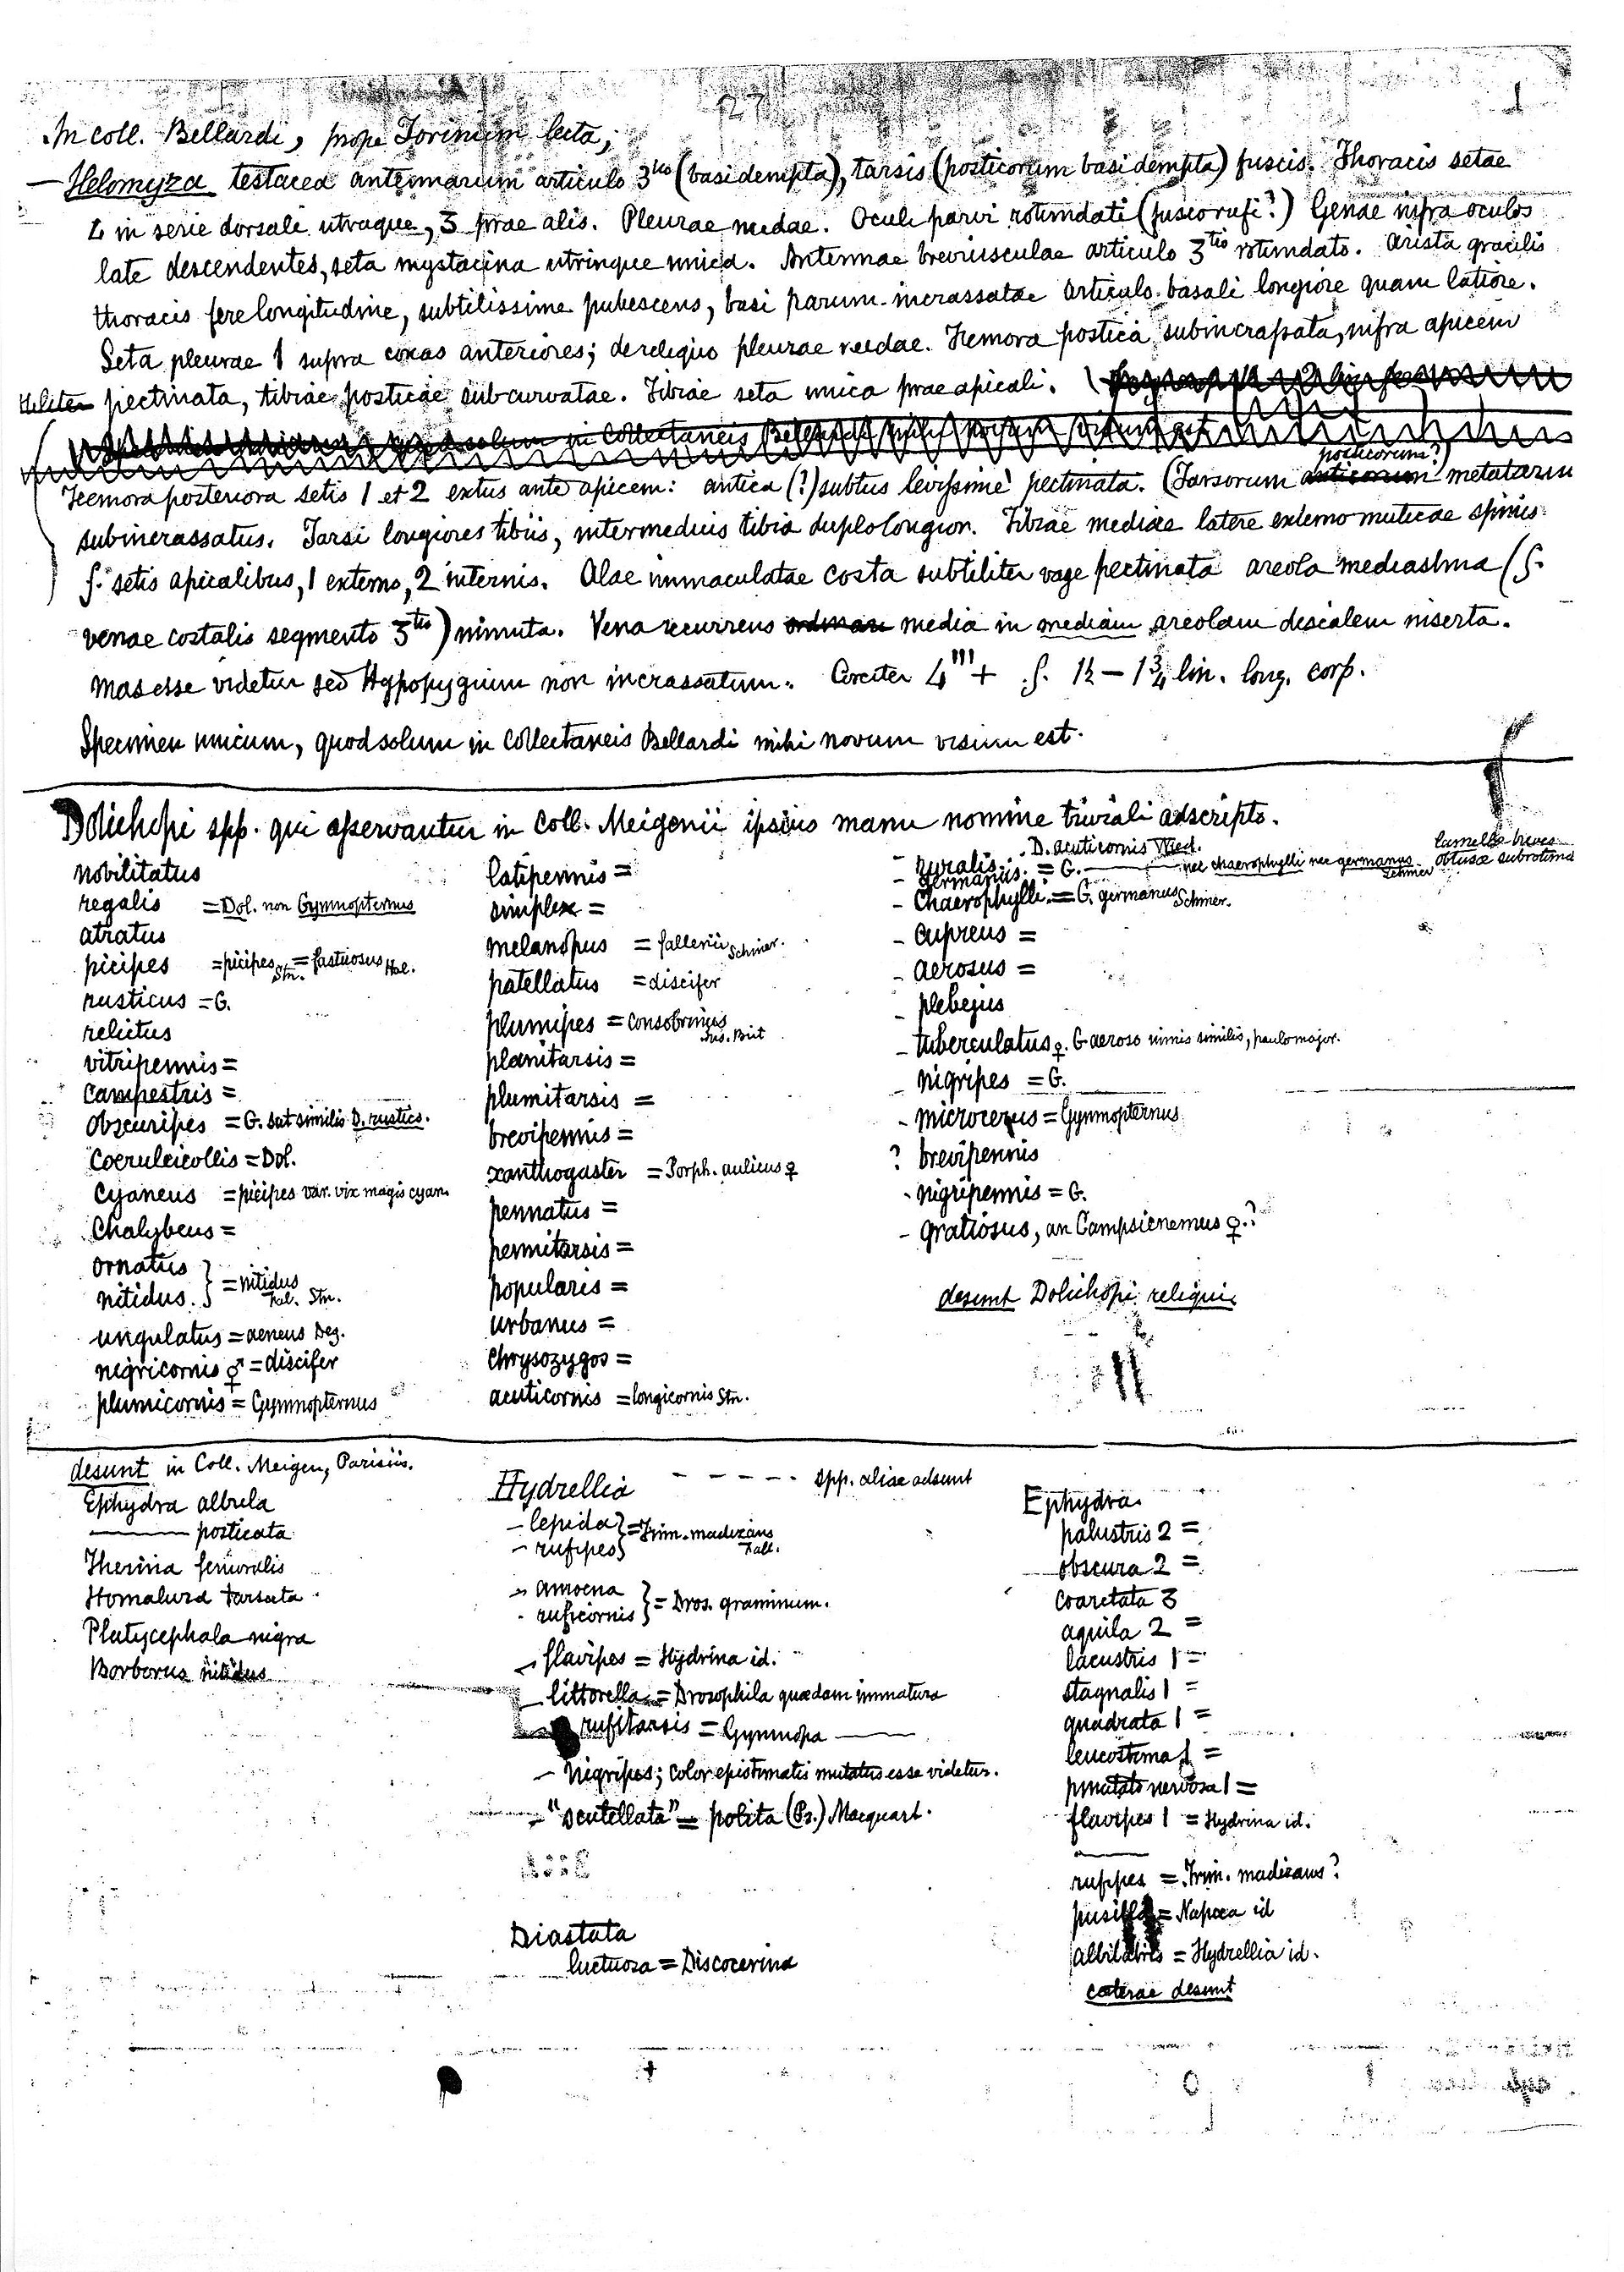 In coll. Bellardi, prope Torinum lecta;
— Helomyza testacea antennarum articulo 3tio (basi dempta), tarsis (posticorum basi dempta) fuscis. Thoracis setae
4 in serie dorsali utraque, 3 prae alis. Pleurae nudae. Oculi parvi rotundati (fusco rufi?) Genae infra oculos
late descendentes, seta mystacina utrinque unica. Antennae breviusculae articulo 3tio rotundato. Arista gracilis
thoracis fere longitudine, subtilissime pubescens, basi parum incrassatae articulo basali longiore quam latiore.
Seta pleurae 1 supra coxas anteriores; de reliquo pleurae nudae. Femora postica subincrassata, infra apicem
pectinata, tibiae posticae subcurvatae. Tibiae seta unica praeapicali.
solum in Collectaneis
posticorum?)
Femora posteriora setis 1 et 2 extus ante apicem: antica (?) subtus levissime pectinata. (Tarsorum anticorum metatarsus
subincrassatus. Tarsi longiores tibiis, intermediis tibia duplo longior. Tibiae mediae latere externo muticae spinis
s. setis apicalibus, 1 externo, 2 internis. Alae immaculatae costa subtiliter vage pectinata areola mediastina (s.
venae costalis segmento 3tio) minuta. Vena recurrens media in mediam areolam discalem inserta.
Mas esse videtur sed Hypopygium non incrassatum. Circiter 4''' + s. 1½ – 1¾ lin. long. corp.
Specimen unicum, quod solum in Collectaneis Bellardi mihi novum visum est.
Dolichopi spp. qui asservantur in Coll. Meigenii ipsius manu nomine triviali adscripto.
nobilitatus
regalis = Dol. non Gymnopternus
atratus
picipes = picipes Stn. = fastuosus Hal.
rusticus = G.
relictus
vitripennis =
campestris =
obscuripes = G. sat similis D. rustico.
Coeruleicollis = Dol.
Cyaneus = picipes var. vix magis cyan.
Chalybeus =
ornatus
nitidus } = nitidus Fal. Stn.
ungulatus = aeneus Deg.
nigricornis ♂♀ = discifer
plumicornis = Gymnopternus
latipennis =
simplex =
melanopus = fallenii Schiner.
patellatus = discifer
plumipes = consobrinus Ins. Brit
planitarsis =
plumitarsis =
brevipennis =
xanthogaster = Porph. aulicus ♀
pennatus =
pennitarsis =
popularis =
urbanus =
chrysozygos =
acuticornis = longicornis Stn.
D. acuticornis Wied.
- ruralis
- germanus. = G. — nec chaerophylli nec germanus Schiner
lamellae breves
obtusae subrotund
- Chaerophylli = G. germanus Schiner.
- cupreus =
- aerosus =
- plebejus
- tuberculatus ♀. G aeroso nimis similis, paulo major.
- nigripes = G.
- microcerus = Gymnopternus
? brevipennis
- nigripennis = G.
- gratiosus, an Campsicnemus ♀?
desunt Dolichopi reliqui
desunt in Coll. Meigen, Parisiis.
Ephydra albula
——— posticata
Therina femoralis
Homalura tarsata
Platycephala nigra
Borborus nitidus
Hydrellia - - - - - spp. aliae adsunt
- lepida
- rufipes } = Trim. madizans Fall.
- amoena
- ruficornis } = Dros. graminum.
- flavipes = Hydrina id.
- littorella = Drosophila quaedam immatura
rufitarsis = Gymnopa ———
- Nigripes; color epistomatis mutatus esse videtur.
- "scutellata" = polita (Ps.) Macquart.
Diastata
luctuosa = Discocerina
Ephydra.
palustris 2 =
obscura 2 =
coarctata 3
aquila 2 =
lacustris 1 =
stagnalis 1 =
quadrata 1 =
leucostoma 1 =
punctato nervosa 1 =
flavipes 1 = Hydrina id.
rufipes = Trim. madizans?
pusilla = Napaea id
albilabris = Hydrellia id.
caeterae desunt